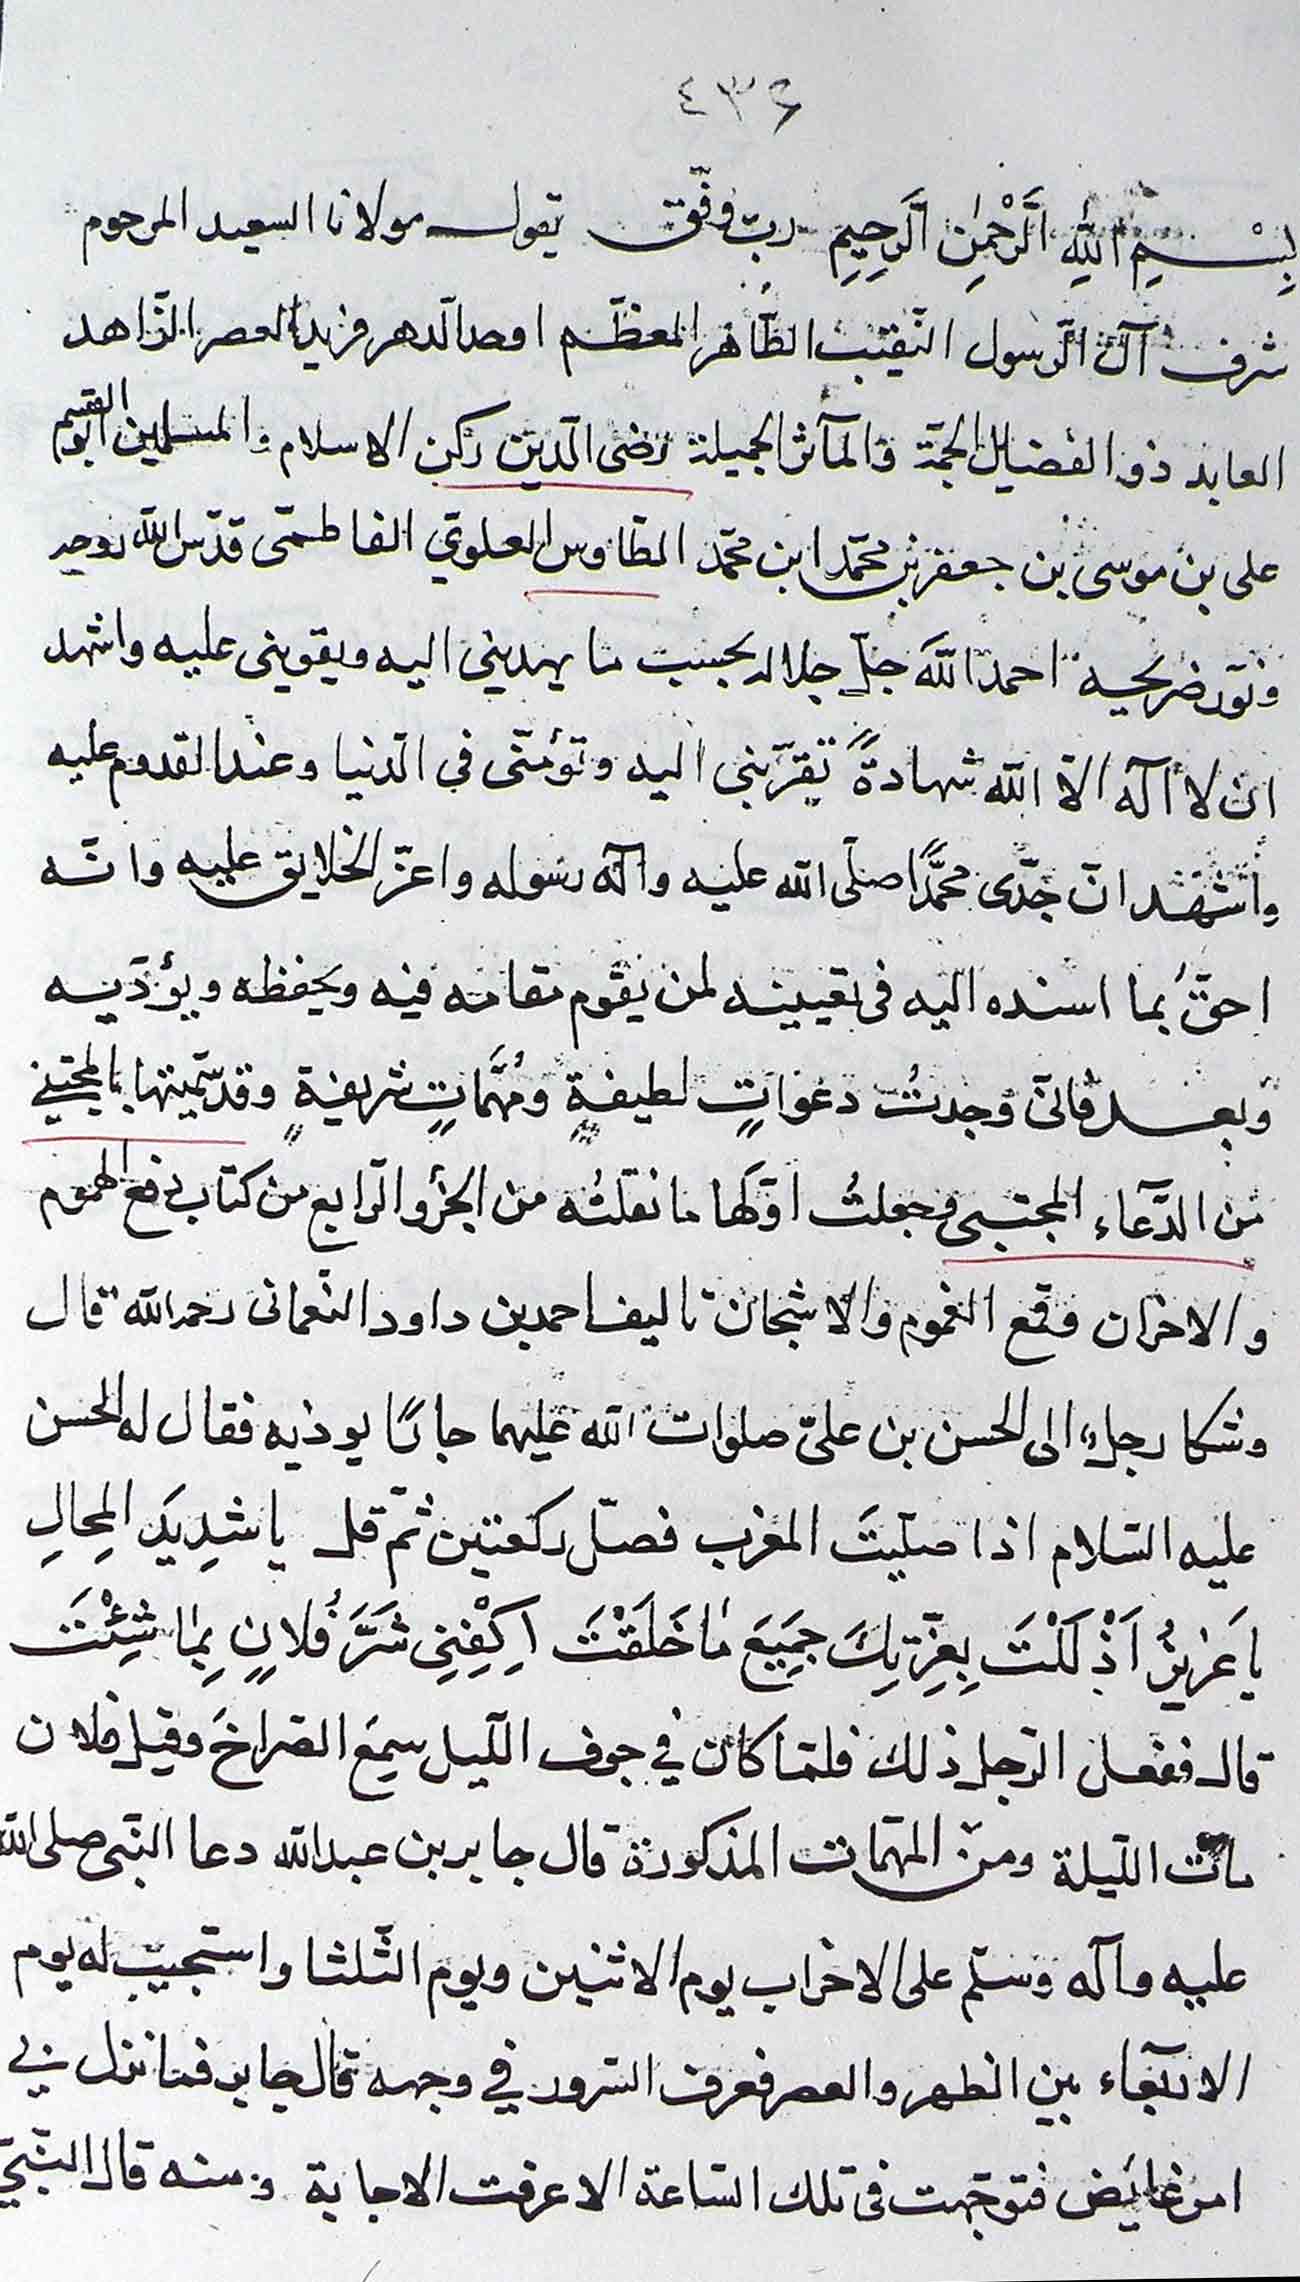 ٤٣۶
بِسْمِ اللهِ الرَّحْمٰنِ الرَّحِيمِ ربّ وفّق يقول مولانا السعيد المرحوم
شرف آل الرّسول النّقيب الطّاهر المعظّم اوحد الدهر فريد العصر الزّاهد
العابد ذو الفضايل الجمّة والمآثر الجميلة رضى الدين ركن الاسلام والمسلمين ابو القسم
على بن موسى بن جعفر بن محمّد ابن محمّد الطاوس العلوي الفاطمّى قدّس الله روحه
ونوّر ضريحه احمد اللهَ جلّ جلاله بحسب ما يهديني اليه ويقويني عليه واشهد
ان لا آله الاّ الله شهادةً تقرّبني اليه وتؤمنّى في الدّنيا وعند القدوم عليه
واشهد انّ جدّى محمّدًا صلّى الله عليه وآله رسوله واعزّ الخلايق عليه وانّه
احقُّ بما اسنده اليه فى تعيينه لمن يقوم مقامه فيه ويحفظه ويؤدّيه
وبعد فانّى وجدتُ دعواتٍ لطيفةٍ ومُهمَّاتٍ شريفةٍ وقد سمّيتها بالمجتنى
من الدّعاء المجتبى وجعلتُ اوّلها ما نقلتُه من الجزؤ الرّابع من كتاب دفع الهموم
والاحزان وقمع الغموم والاشجان تاليف احمد بن داود النّعمانى رحمه الله قال
وشكا رجلٌ الى الحسن بن علىّ صلوات الله عليهما جارًا يوذيه فقال له الحسن
عليه السّلام اذا صلّيتَ المغرب فصلّ ركعتين ثمّ قل يا شدِيدَ المِحالِ
يا عَزيزُ اَذْلَلْتَ بِعِزّتِكَ جَمِيعَ مٰا خَلَقْتَ اِكْفِنِى شَرَّ فُلانٍ بِمٰا شِئْتَ
قال ففعل الرّجل ذلك فلمّا كان في جوف اللّيل سمِعَ الصّراخَ وقيل فلان
مات اللّيلة ومن المهمّات المذكورة قال جابر بن عبد الله دعا النّبى صلى الله
عليه وآله وسلّم على الاحزاب يوم الاثنين ويوم الثّلثا واستجيب له يوم
الاربعاء بين الظهر والعصر فعرف السّرور في وجهه قال جابر فما نزل بي
امر غايض فتوجّهت فى تلك السّاعة الا عرفت الاجابة ومنه قال النّبيّ